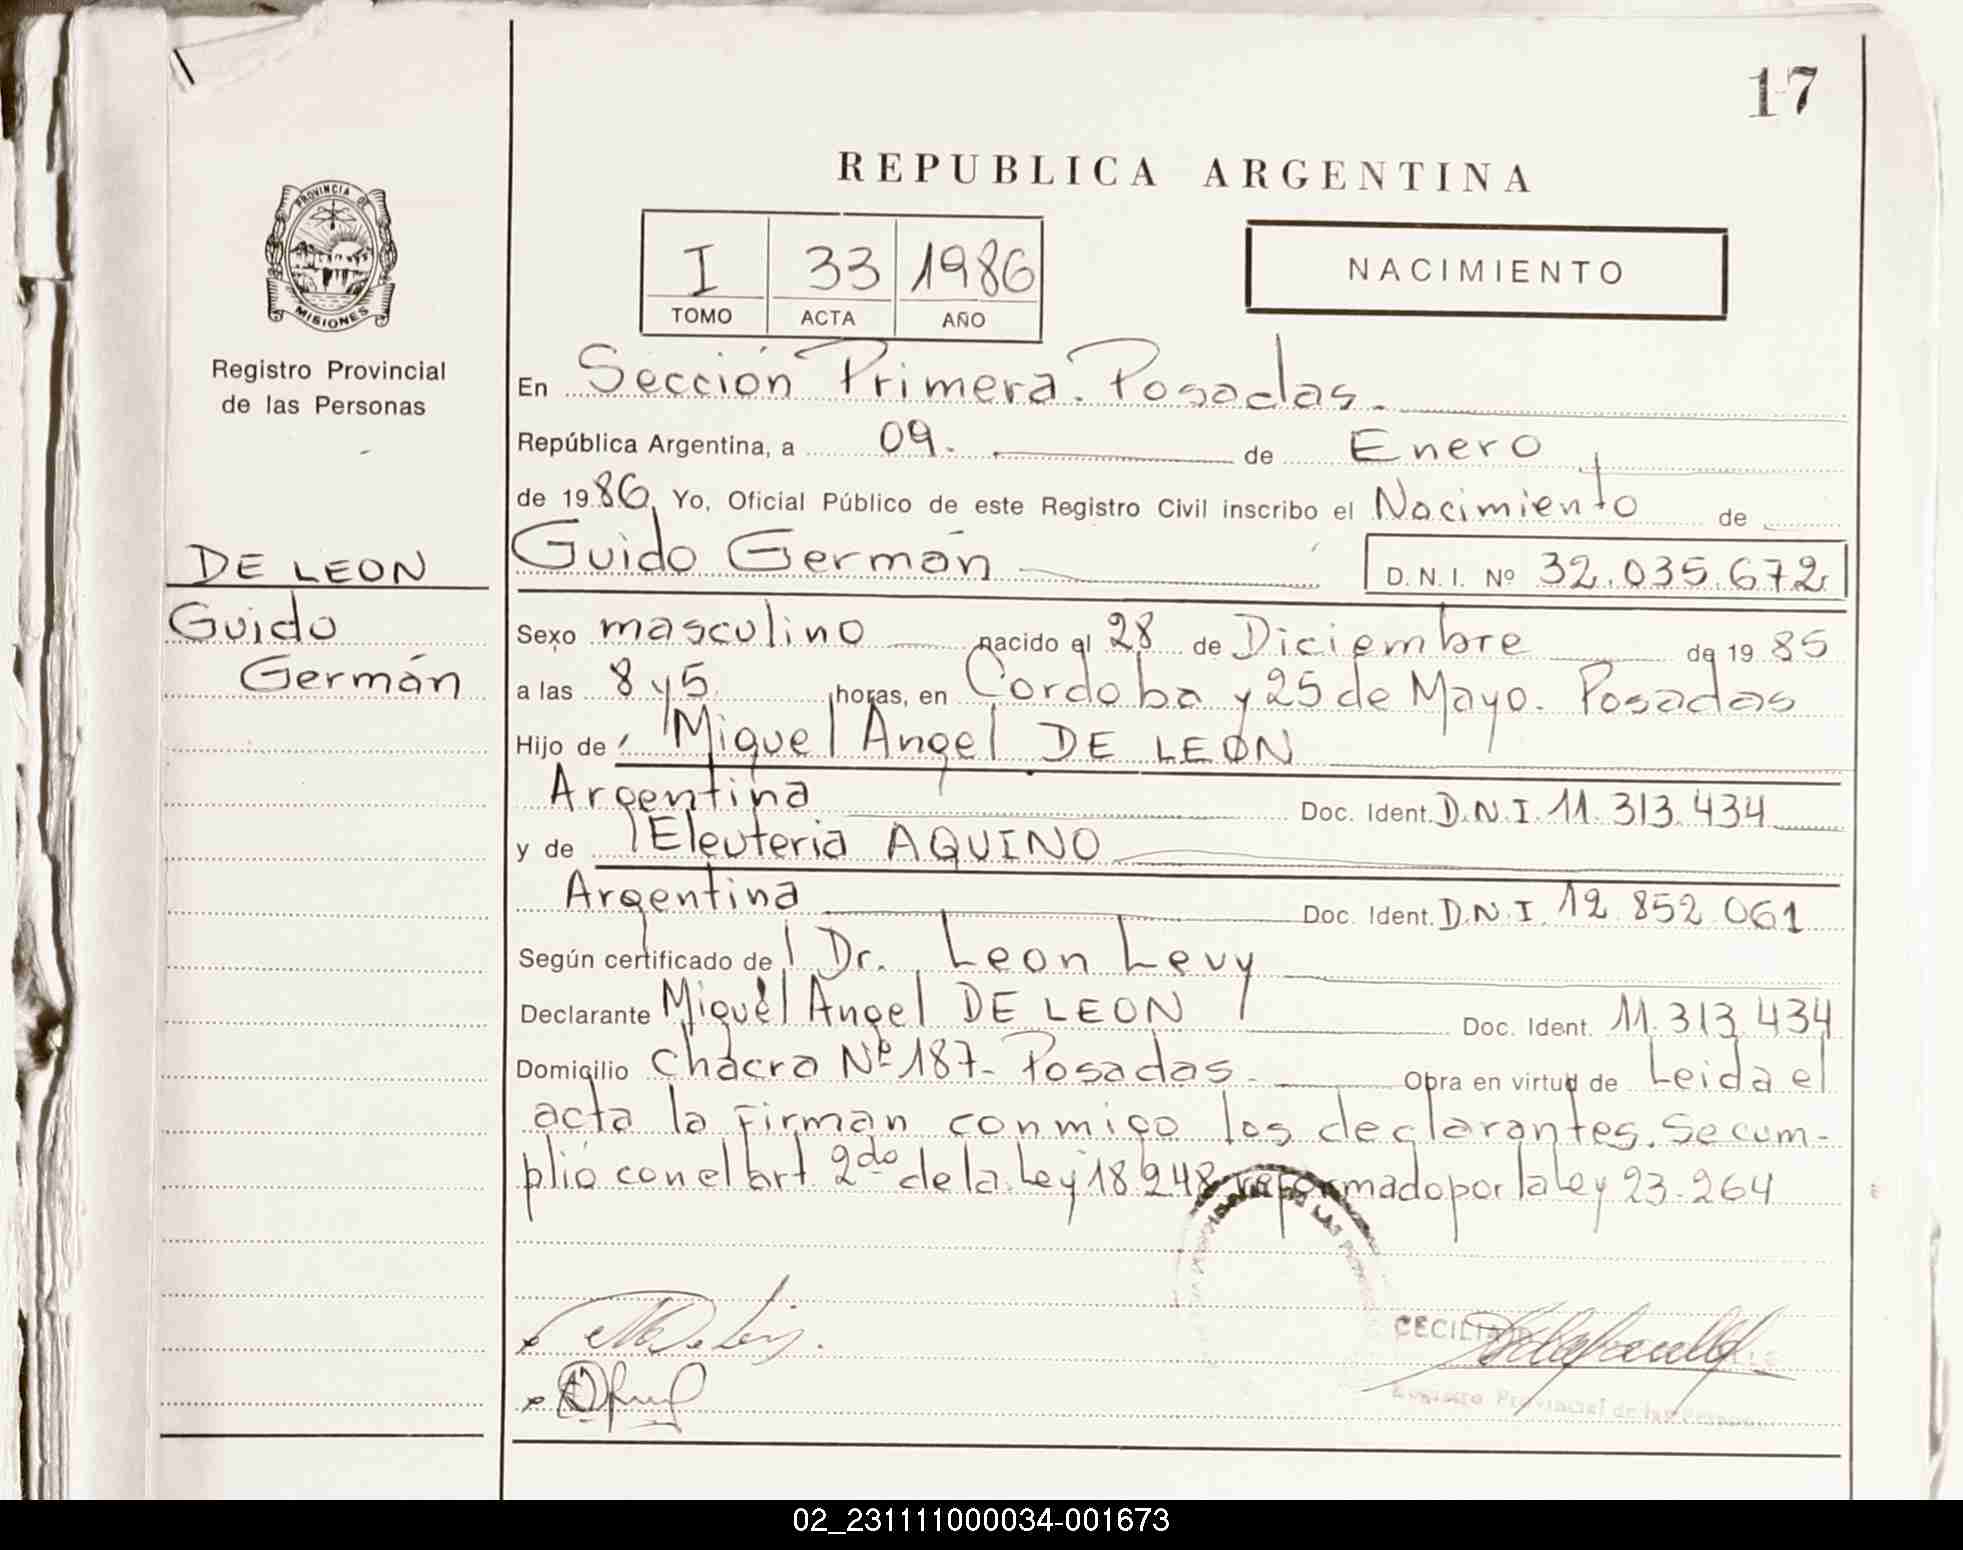 17
REPUBLICA ARGENTINA
PROVINCIA DE
MISIONES
Registro Provincial
de las Personas
I 33 1986
TOMO ACTA AÑO
NACIMIENTO
En Sección Primera. Posadas.
República Argentina, a 09. de Enero
de 1986 Yo, Oficial Público de este Registro Civil inscribo el Nacimiento de
DE LEON
Guido
Germán
Guido Germán D.N.I. Nº 32.035.672
Sexo masculino nacido el 28 de Diciembre de 1985
a las 8 y 5 horas, en Cordoba y 25 de Mayo. Posadas
Hijo de Miguel Angel DE LEON
Argentina Doc. Ident. D.N.I. 11.313.434
y de Eleuteria AQUINO
Argentina Doc. Ident. D.N.I. 12.852.061
Según certificado de Dr. Leon Levy
Declarante Miguel Angel DE LEON Doc. Ident. 11.313.434
Domicilio Chacra Nº 187- Posadas. Obra en virtud de Leida el
acta la Firman conmigo los declarantes. Se cum-
plió con el art. 2do de la Ley 18.248 reformado por la Ley 23.264
CECILIA
Registro Provincial de las Personas
02_231111000034-001673